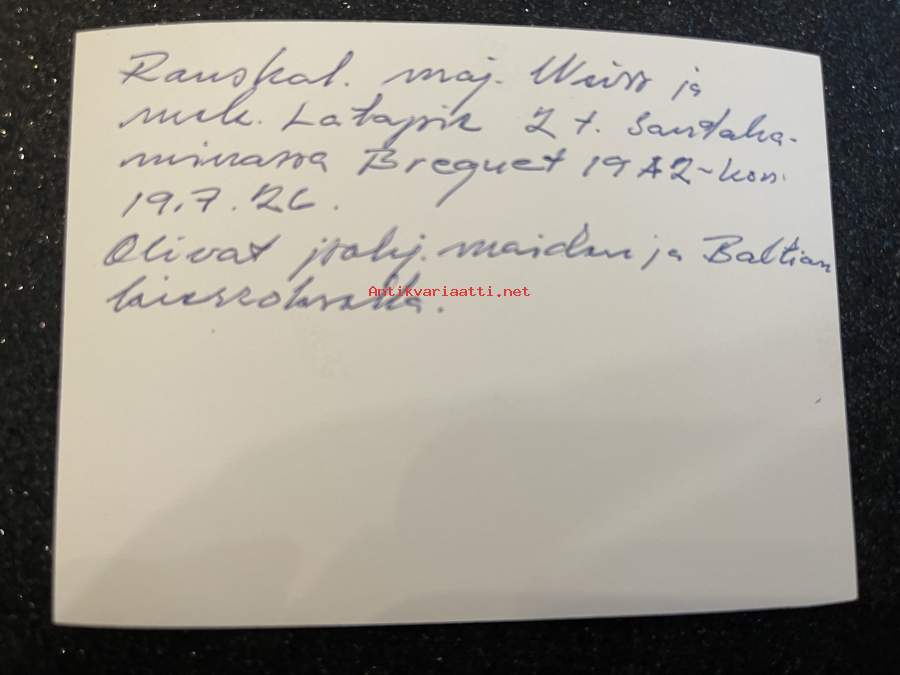 Ranskal. maj. Weiss ja
mek. Latapie 2 t. Santaha-
minassa Breguet 19 A2-kon.
19.7.26.
Olivat pohj. maiden ja Baltian
kiertolennolla.
Antikvariaatti.net